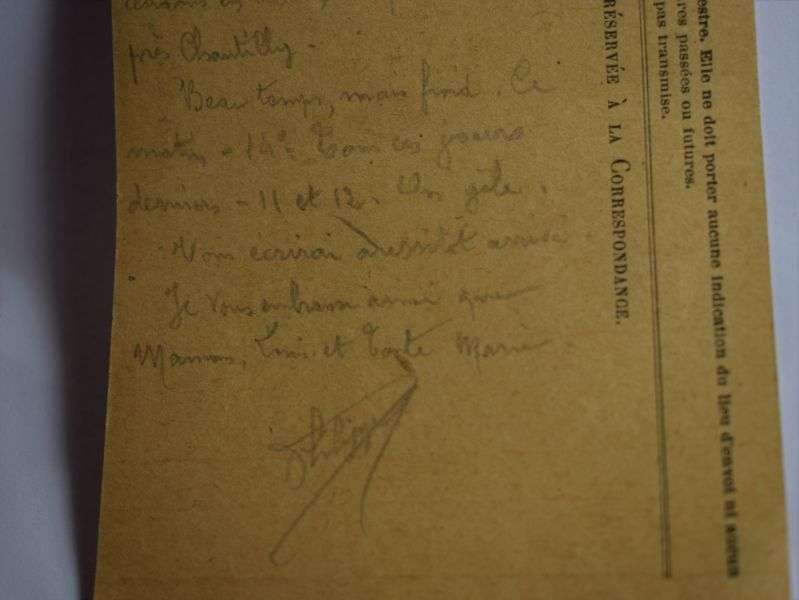 près Chantilly.
Beau temps, mais froid. Ce
matin - 14°. Tous ces jours
derniers - 11 et 12. On gèle.
Vous écrirai aussitôt arrivé
Je vous embrasse ainsi que
Maman, et Tante Marie.
Philippe
RÉSERVÉE À LA CORRESPONDANCE.
estre. Elle ne doit porter aucune indication du lieu d'envoi ni aucun
res passées ou futures.
pas transmise.